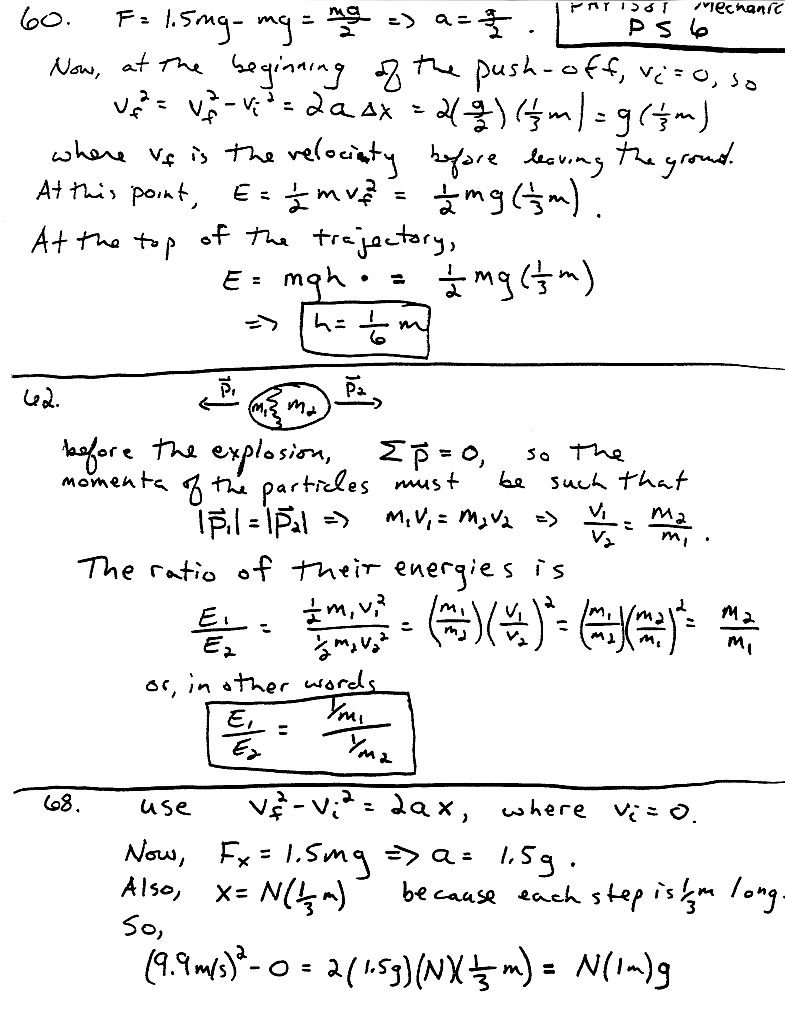 60. F = 1.5mg - mg = mg/2 => a = g/2 .
PHY 1301 Mechanic
PS 6
Now, at the beginning of the push-off, vi = 0, so
vf² = vf² - vi² = 2aΔx = 2(g/2)(1/3 m) = g(1/3 m)
where vf is the velociety before leaving the ground.
At this point, E = 1/2 mvf² = 1/2 mg(1/3 m).
At the top of the trajectory,
E = mgh · = 1/2 mg(1/3 m)
=> h = 1/6 m
62. p⃗1 m1 m2 p⃗2
before the explosion, Σp⃗ = 0, so the
momenta of the particles must be such that
|p⃗1| = |p⃗2| => m1v1 = m2v2 => v1/v2 = m2/m1 .
The ratio of their energies is
E1/E2 = (1/2 m1v1²)/(1/2 m2v2²) = (m1/m2)(v1/v2)² = (m1/m2)(m2/m1)² = m2/m1
or, in other words
E1/E2 = (1/m1)/(1/m2)
68. use vf² - vi² = 2ax, where vi = 0.
Now, Fx = 1.5mg => a = 1.5g .
Also, x = N(1/3 m) because each step is 1/3 m long.
So,
(9.9 m/s)² - 0 = 2(1.5g)(N)(1/3 m) = N(1m)g